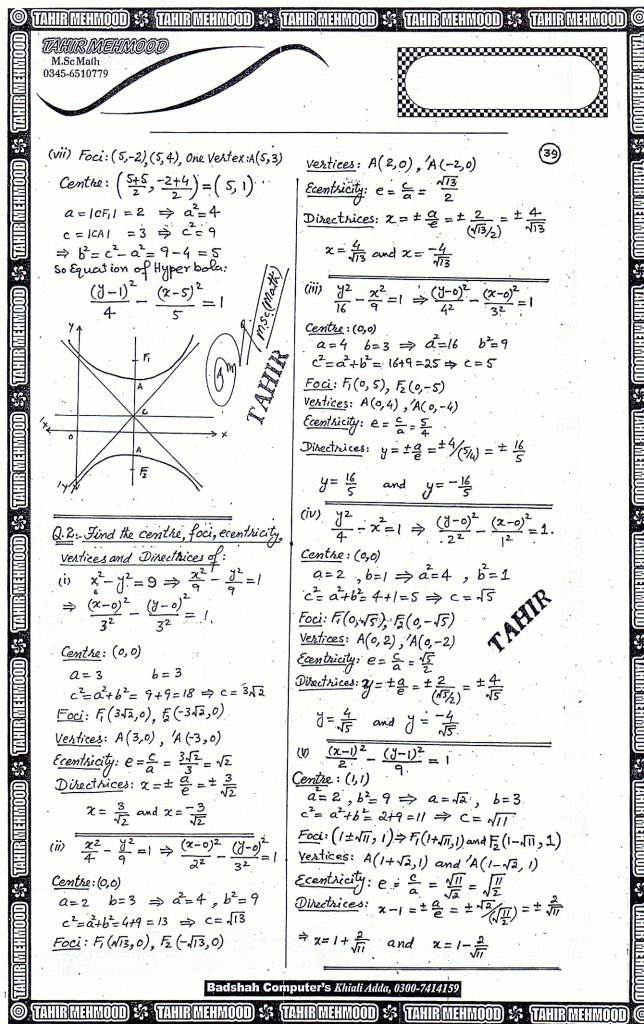 TAHIR MEHMOOD TAHIR MEHMOOD TAHIR MEHMOOD TAHIR MEHMOOD TAHIR MEHMOOD
TAHIR MEHMOOD
M.Sc Math
0345-6510779
39
(vii) Foci: (5,-2),(5,4), One Vertex: A(5,3)
Centre: (5+5/2, -2+4/2) = (5, 1)
a = |CF₁| = 2 ⇒ a² = 4
c = |CA| = 3 ⇒ c² = 9
⇒ b² = c² - a² = 9 - 4 = 5
So Equation of Hyperbola:
(y-1)²/4 - (x-5)²/5 = 1
M.Sc(Math)
TAHIR
Y
F₁
A
C
X
O
X
A
F₂
Y
Q.2:- Find the centre, foci, ecentricity,
vertices and Directrices of:
(i) x² - y² = 9 ⇒ x²/9 - y²/9 = 1
⇒ (x-0)²/3² - (y-0)²/3² = 1.
Centre: (0,0)
a = 3 b = 3
c² = a² + b² = 9+9 = 18 ⇒ c = 3√2
Foci: F₁(3√2,0), F₂(-3√2,0)
Vertices: A(3,0), 'A(-3,0)
Ecentricity: e = c/a = 3√2/3 = √2
Directrices: x = ± a/e = ± 3/√2
x = 3/√2 and x = -3/√2
(ii) x²/4 - y²/9 = 1 ⇒ (x-0)²/2² - (y-0)²/3² = 1
Centre: (0,0)
a = 2 b = 3 ⇒ a² = 4, b² = 9
c² = a² + b² = 4+9 = 13 ⇒ c = √13
Foci: F₁(√13,0), F₂(-√13,0)
Vertices: A(2,0), 'A(-2,0)
Ecentricity: e = c/a = √13/2
Directrices: x = ± a/e = ± 2/(√13/2) = ± 4/√13
x = 4/√13 and x = -4/√13
(iii) y²/16 - x²/9 = 1 ⇒ (y-0)²/4² - (x-0)²/3² = 1
Centre: (0,0)
a = 4 b = 3 ⇒ a² = 16 b² = 9
c² = a² + b² = 16+9 = 25 ⇒ c = 5
Foci: F₁(0,5), F₂(0,-5)
Vertices: A(0,4), 'A(0,-4)
Ecentricity: e = c/a = 5/4
Directrices: y = ± a/e = ± 4/(5/4) = ± 16/5
y = 16/5 and y = -16/5
(iv) y²/4 - x² = 1 ⇒ (y-0)²/2² - (x-0)²/1² = 1.
Centre: (0,0)
a = 2, b = 1 ⇒ a² = 4, b² = 1
c² = a² + b² = 4+1 = 5 ⇒ c = √5
Foci: F₁(0,√5), F₂(0,-√5)
Vertices: A(0,2), 'A(0,-2)
Ecentricity: e = c/a = √5/2
Directrices: y = ± a/e = ± 2/(√5/2) = ± 4/√5
y = 4/√5 and y = -4/√5
TAHIR
(v) (x-1)²/2 - (y-1)²/9 = 1
Centre: (1,1)
a² = 2, b² = 9 ⇒ a = √2, b = 3
c² = a² + b² = 2+9 = 11 ⇒ c = √11
Foci: (1±√11, 1) ⇒ F₁(1+√11,1) and F₂(1-√11, 1)
Vertices: A(1+√2,1) and 'A(1-√2, 1)
Ecentricity: e = c/a = √11/√2 = √11/2
Directrices: x-1 = ± a/e = ± √2/(√11/2) = ± 2/√11
⇒ x = 1 + 2/√11 and x = 1 - 2/√11
Badshah Computer's Khiali Adda, 0300-7414159
TAHIR MEHMOOD TAHIR MEHMOOD TAHIR MEHMOOD TAHIR MEHMOOD TAHIR MEHMOOD